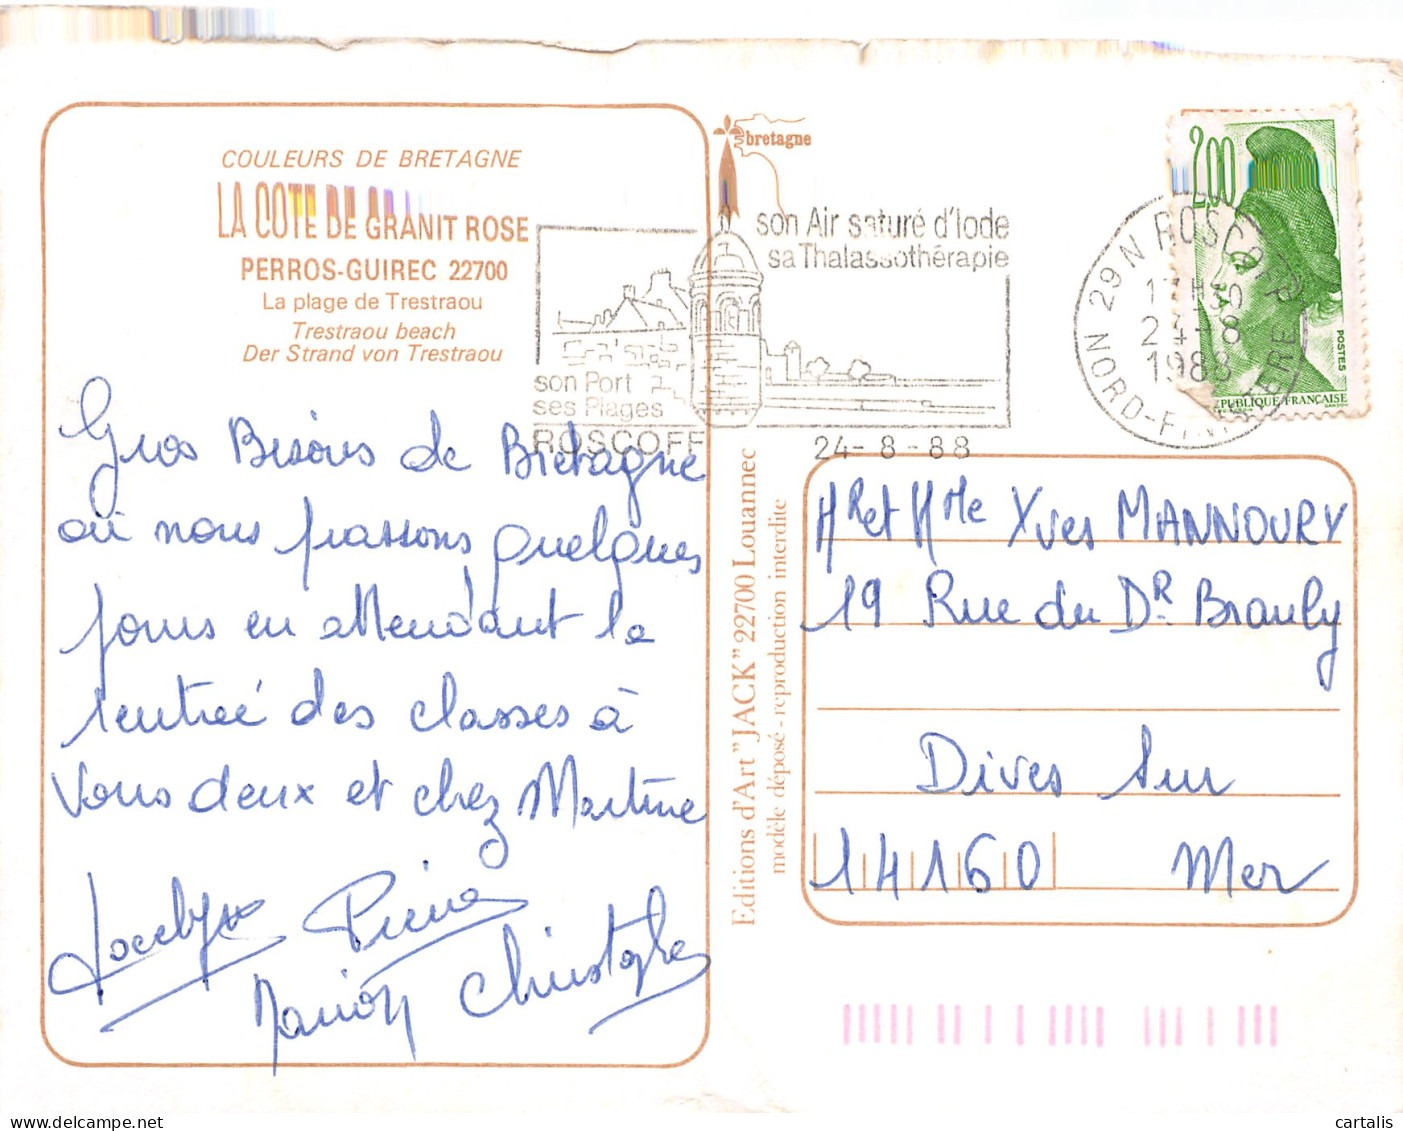 COULEURS DE BRETAGNE
LA COTE DE GRANIT ROSE
PERROS-GUIREC 22700
La plage de Trestraou
Trestraou beach
Der Strand von Trestraou
Gros Bisous de Bretagne
où nous passons quelques
jours en attendant la
rentrée des classes à
vous deux et chez Martine
Jocelyne Pierre
Marion Christophe
bretagne
son Air saturé d'Iode
sa Thalassothérapie
son Port
ses Plages
ROSCOFF
24-8-88
29 N ROSCOFF
17H30
24-8
1988
NORD-FINISTERE
2,00
POSTES
RÉPUBLIQUE FRANÇAISE
Editions d'Art "JACK" 22700 Louannec
modèle déposé - reproduction interdite
Mr et Mme Yves MANNOURY
19 Rue du Dr Brauly
Dives Sur
14160 Mer
cartalis